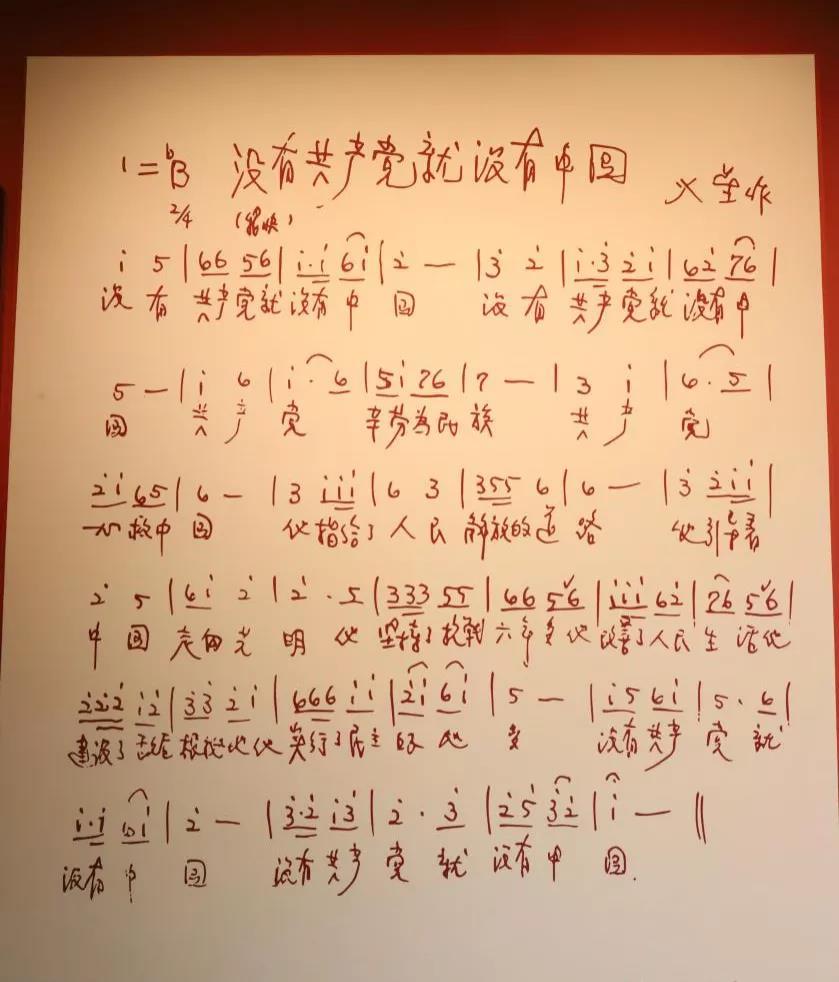 1=♭B 没有共产党就没有中国
2/4 (稍快) 火星作
i 5 | 66 56 | i·i 6i | 2̇ — | 3̇ 2̇ | i·3̇ 2̇i | 62̇ 76 |
没有共产党就没有中国 没有共产党就没有中
5 — | i 6 | i·6 | 5i 76 | 7 — | 3 i | 6·5 |
国 共产党 辛劳为民族 共产党
2̇i 65 | 6 — | 3 iii | 6 3 | 355 6 | 6 — | 3̇ 2̇ii |
一心救中国 他指给了人民解放的道路 他引导着
2̇ 5 | 6i 2̇ | 2̇·5 | 333 55 | 66 56 | iii 62̇ | 76 56 |
中国走向光明 他坚持了抗战六年多他改善了人民生活他
2̇2̇2̇ i2̇ | 3̇3̇ 2̇i | 666 ii | 2̇i 6i | 5 — | i5 6i | 5·6 |
建设了敌后根据地他实行了民主好处多 没有共产党就
i·i 6i | 2̇ — | 3̇·2̇ i3̇ | 2̇·3̇ | 2̇5 3̇2̇ | i — ‖
没有中国 没有共产党就没有中国.